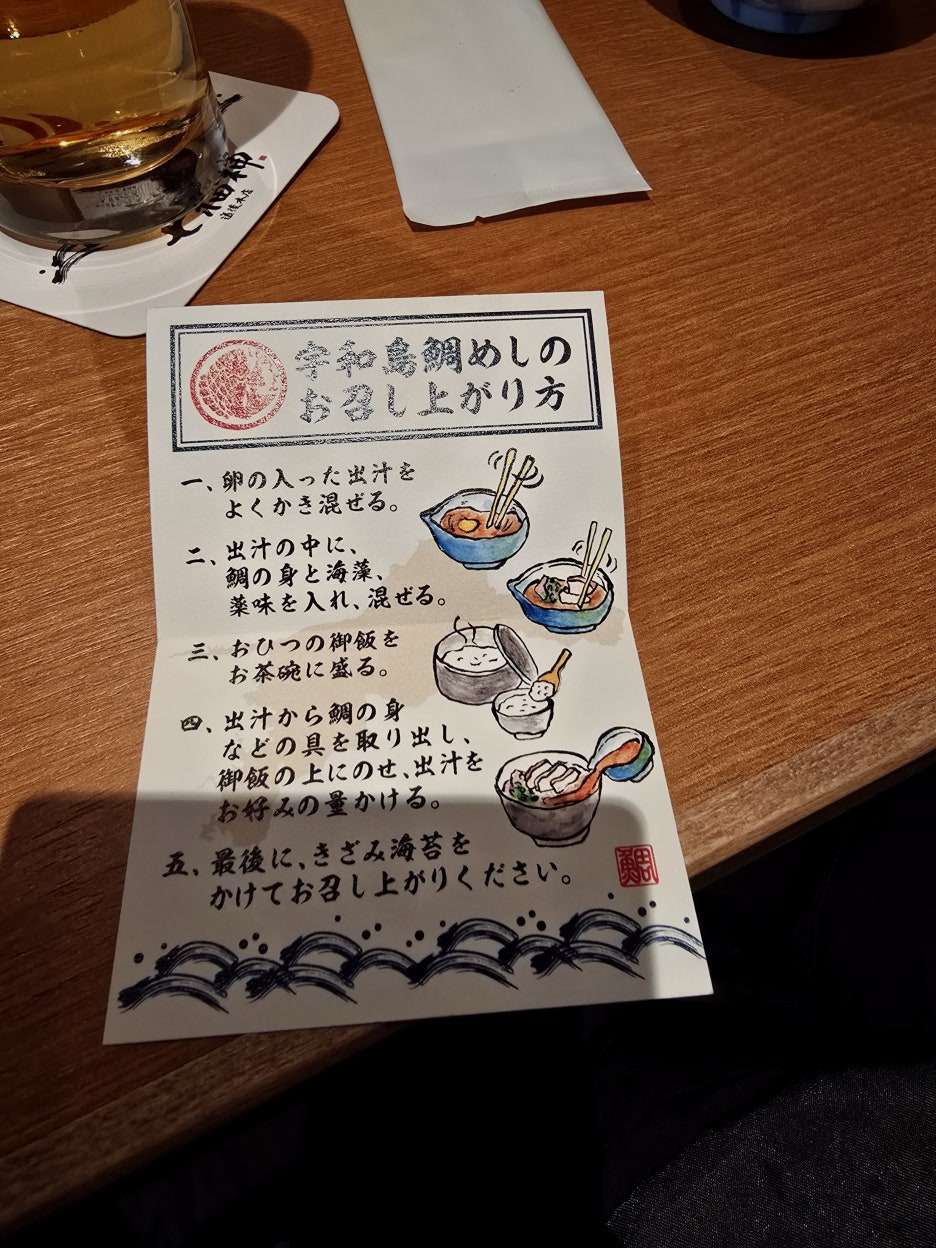 道後本店
宇和島鯛めしの
お召し上がり方
一、卵の入った出汁を
よくかき混ぜる。
二、出汁の中に、
鯛の身と海藻、
薬味を入れ、混ぜる。
三、おひつの御飯を
お茶碗に盛る。
四、出汁から鯛の身
などの具を取り出し、
御飯の上にのせ、出汁を
お好みの量かける。
五、最後に、きざみ海苔を
かけてお召し上がりください。
鯛